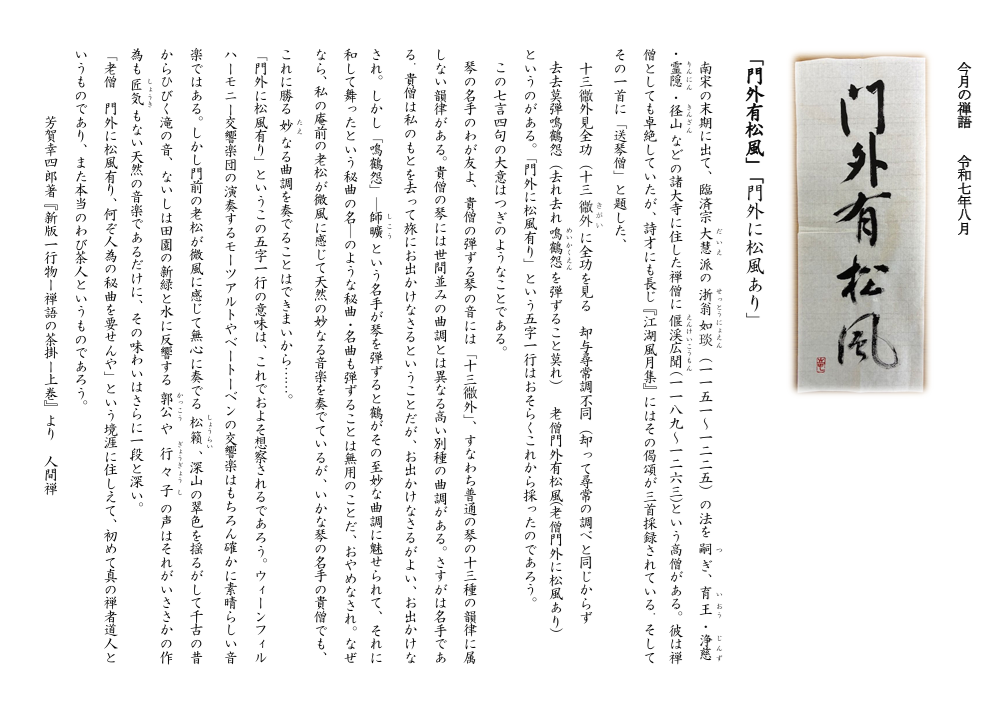 今月の禅語　令和七年八月
門外有松風
「門外有松風」「門外に松風あり」
南宋の末期に出て、臨済宗大慧派の浙翁如琰（一一五一～一二二五）の法を嗣ぎ、育王・浄慈
・霊隠・径山などの諸大寺に住した禅僧に偃渓広聞(一一八九～一二六三)という高僧がある。彼は禅
僧としても卓絶していたが、詩才にも長じ『江湖風月集』にはその偈頌が三首採録されている。そして
その一首に「送琴僧」と題した、
十三徽外見全功（十三徽外に全功を見る　却与尋常調不同（却って尋常の調べと同じからず
去去莫弾鳴鶴怨（去れ去れ鳴鶴怨を弾ずること莫れ）　老僧門外有松風(老僧門外に松風あり）
というのがある。「門外に松風有り」という五字一行はおそらくこれから採ったのであろう。
この七言四句の大意はつぎのようなことである。
琴の名手のわが友よ、貴僧の弾ずる琴の音には「十三徽外」、すなわち普通の琴の十三種の韻律に属
しない韻律がある。貴僧の琴には世間並みの曲調とは異なる高い別種の曲調がある。さすがは名手であ
る。貴僧は私のもとを去って旅にお出かけなさるということだが、お出かけなさるがよい、お出かけな
され。しかし「鳴鶴怨」―師曠という名手が琴を弾ずると鶴がその至妙な曲調に魅せられて、それに
和して舞ったという秘曲の名―のような秘曲・名曲も弾ずることは無用のことだ、おやめなされ。なぜ
なら、私の庵前の老松が微風に感じて天然の妙なる音楽を奏でているが、いかな琴の名手の貴僧でも、
これに勝る妙なる曲調を奏でることはできまいから……。
「門外に松風有り」というこの五字一行の意味は、これでおよそ想察されるであろう。ウィーンフィル
ハーモニー交響楽団の演奏するモーツアルトやベートーベンの交響楽はもちろん確かに素晴らしい音
楽ではある。しかし門前の老松が微風に感じて無心に奏でる松籟、深山の翠色を揺るがして千古の昔
からひびく滝の音、ないしは田園の新緑と水に反響する郭公や行々子の声はそれがいささかの作
為も匠気もない天然の音楽であるだけに、その味わいはさらに一段と深い。
「老僧　門外に松風有り、何ぞ人為の秘曲を要せんや」という境涯に住しえて、初めて真の禅者道人と
いうものであり、また本当のわび茶人というものであろう。
芳賀幸四郎著『新版一行物―禅語の茶掛―上巻』より　人間禅